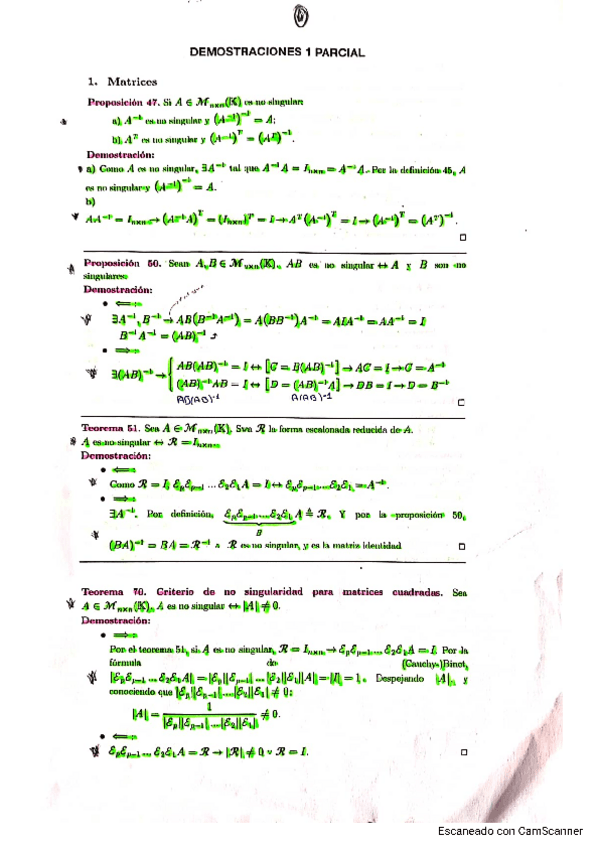 DEMOSTRACIONES 1 PARCIAL
1. Matrices
Proposición 47. Si A ∈ 𝓜ₙₓₙ(𝕂) es no singular:
a) A⁻¹ es no singular y (A⁻¹)⁻¹ = A;
b) Aᵀ es no singular y (A⁻¹)ᵀ = (Aᵀ)⁻¹.
Demostración:
a) Como A es no singular, ∃A⁻¹ tal que A⁻¹A = Iₙₓₙ = A⁻¹A. Por la definición 45, A
es no singular y (A⁻¹)⁻¹ = A.
b)
AA⁻¹ = Iₙₓₙ → (A⁻¹A)ᵀ = (Iₙₓₙ)ᵀ = I → Aᵀ(A⁻¹)ᵀ = I → (A⁻¹)ᵀ = (Aᵀ)⁻¹.
□
Proposición 50. Sean A, B ∈ 𝓜ₙₓₙ(𝕂), AB es no singular ↔ A y B son no
singulares:
Demostración:
• ⟸ :
∃A⁻¹, B⁻¹ → AB(B⁻¹A⁻¹) = A(BB⁻¹)A⁻¹ = AIA⁻¹ = AA⁻¹ = I
B⁻¹A⁻¹ = (AB)⁻¹
• ⟹ :
∃(AB)⁻¹ → { AB(AB)⁻¹ = I ↔ [C = B(AB)⁻¹] → AC = I → C = A⁻¹
(AB)⁻¹AB = I ↔ [D = (AB)⁻¹A] → DB = I → D = B⁻¹
AB(AB)⁻¹ A(AB)⁻¹
□
Teorema 51. Sea A ∈ 𝓜ₙₓₙ(𝕂). Sea 𝓡 la forma escalonada reducida de A.
A es no singular ↔ 𝓡 = Iₙₓₙ.
Demostración:
• ⟸ :
Como 𝓡 = I, ℰₚℰₚ₋₁ … ℰ₂ℰ₁A = I ↔ ℰₚℰₚ₋₁ … ℰ₂ℰ₁ = A⁻¹.
• ⟹ :
∃A⁻¹. Por definición, ℰₚℰₚ₋₁ … ℰ₂ℰ₁ A ≜ 𝓡. Y por la proposición 50,
B
(BA)⁻¹ = BA = 𝓡⁻¹ ∧ 𝓡 es no singular, y es la matriz identidad □
Teorema 70. Criterio de no singularidad para matrices cuadradas. Sea
A ∈ 𝓜ₙₓₙ(𝕂), A es no singular ↔ |A| ≠ 0.
Demostración:
• ⟹ :
Por el teorema 51, si A es no singular, 𝓡 = Iₙₓₙ → ℰₚℰₚ₋₁ … ℰ₂ℰ₁A = I. Por la
fórmula de (Cauchy-)Binet,
|ℰₚℰₚ₋₁ … ℰ₂ℰ₁A| = |ℰₚ||ℰₚ₋₁| … |ℰ₂||ℰ₁||A| = |I| = 1. Despejando |A|, y
conociendo que |ℰₚ||ℰₚ₋₁| … |ℰ₂||ℰ₁| ≠ 0:
|A| = 1 / |ℰₚ||ℰₚ₋₁| … |ℰ₂||ℰ₁| ≠ 0.
• ⟸ :
ℰₚℰₚ₋₁ … ℰ₂ℰ₁A = 𝓡 → |𝓡| ≠ 0 ∨ 𝓡 = I. □
Escaneado con CamScanner